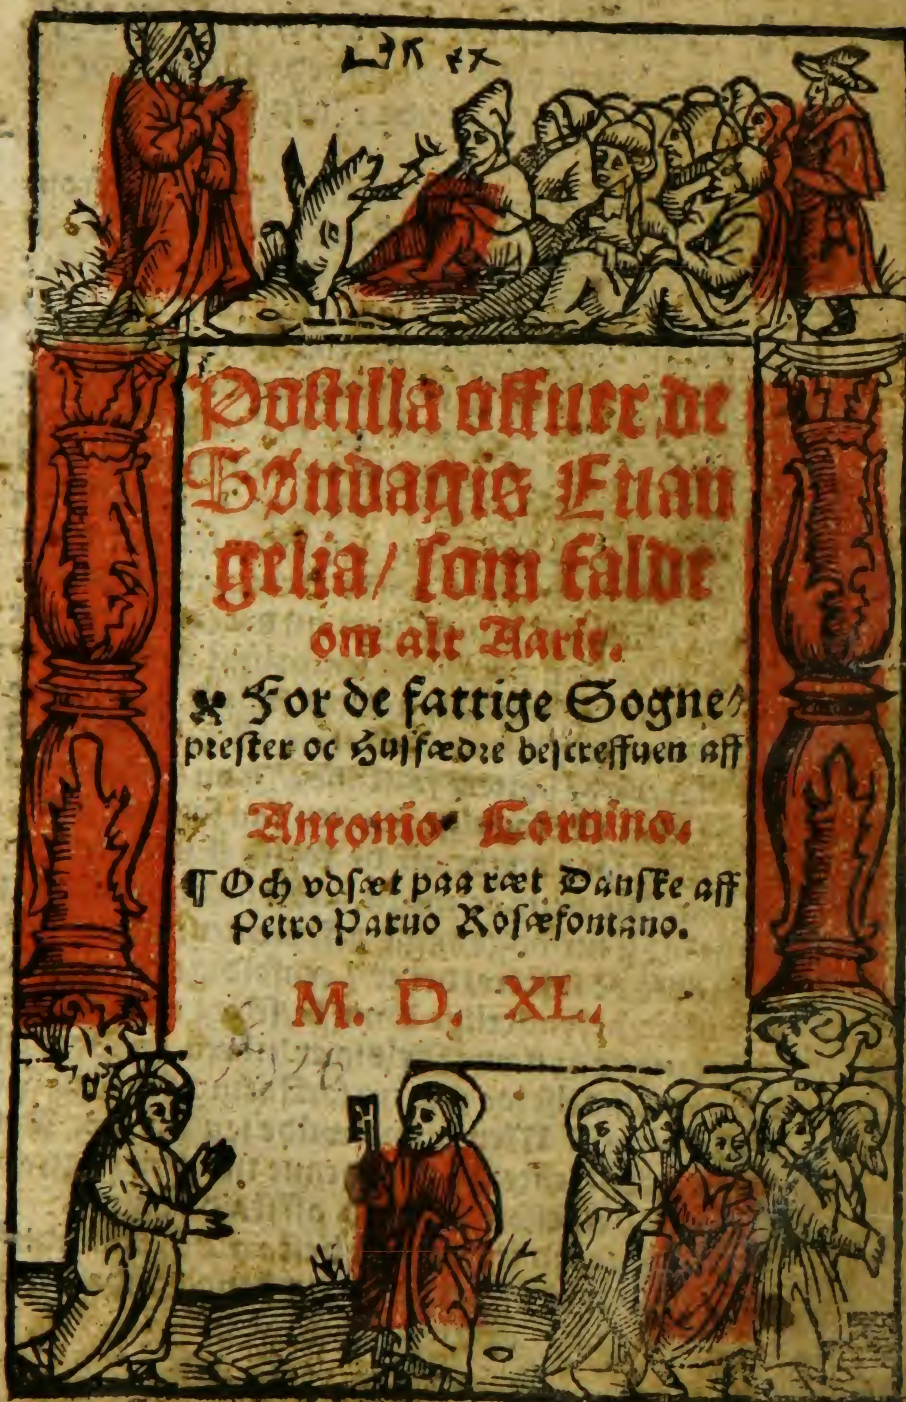 Postilla offuer de
Søndagis Euan
gelia/ som falde
om alt Aarit.
For de fattige Sogne⸗
prester oc Husfædre bescreffuen aff
Antonio Coruino.
¶ Och vdsæt paa ræt Danske aff
Petro Paruo Rosæfontano.
M. D. XL.